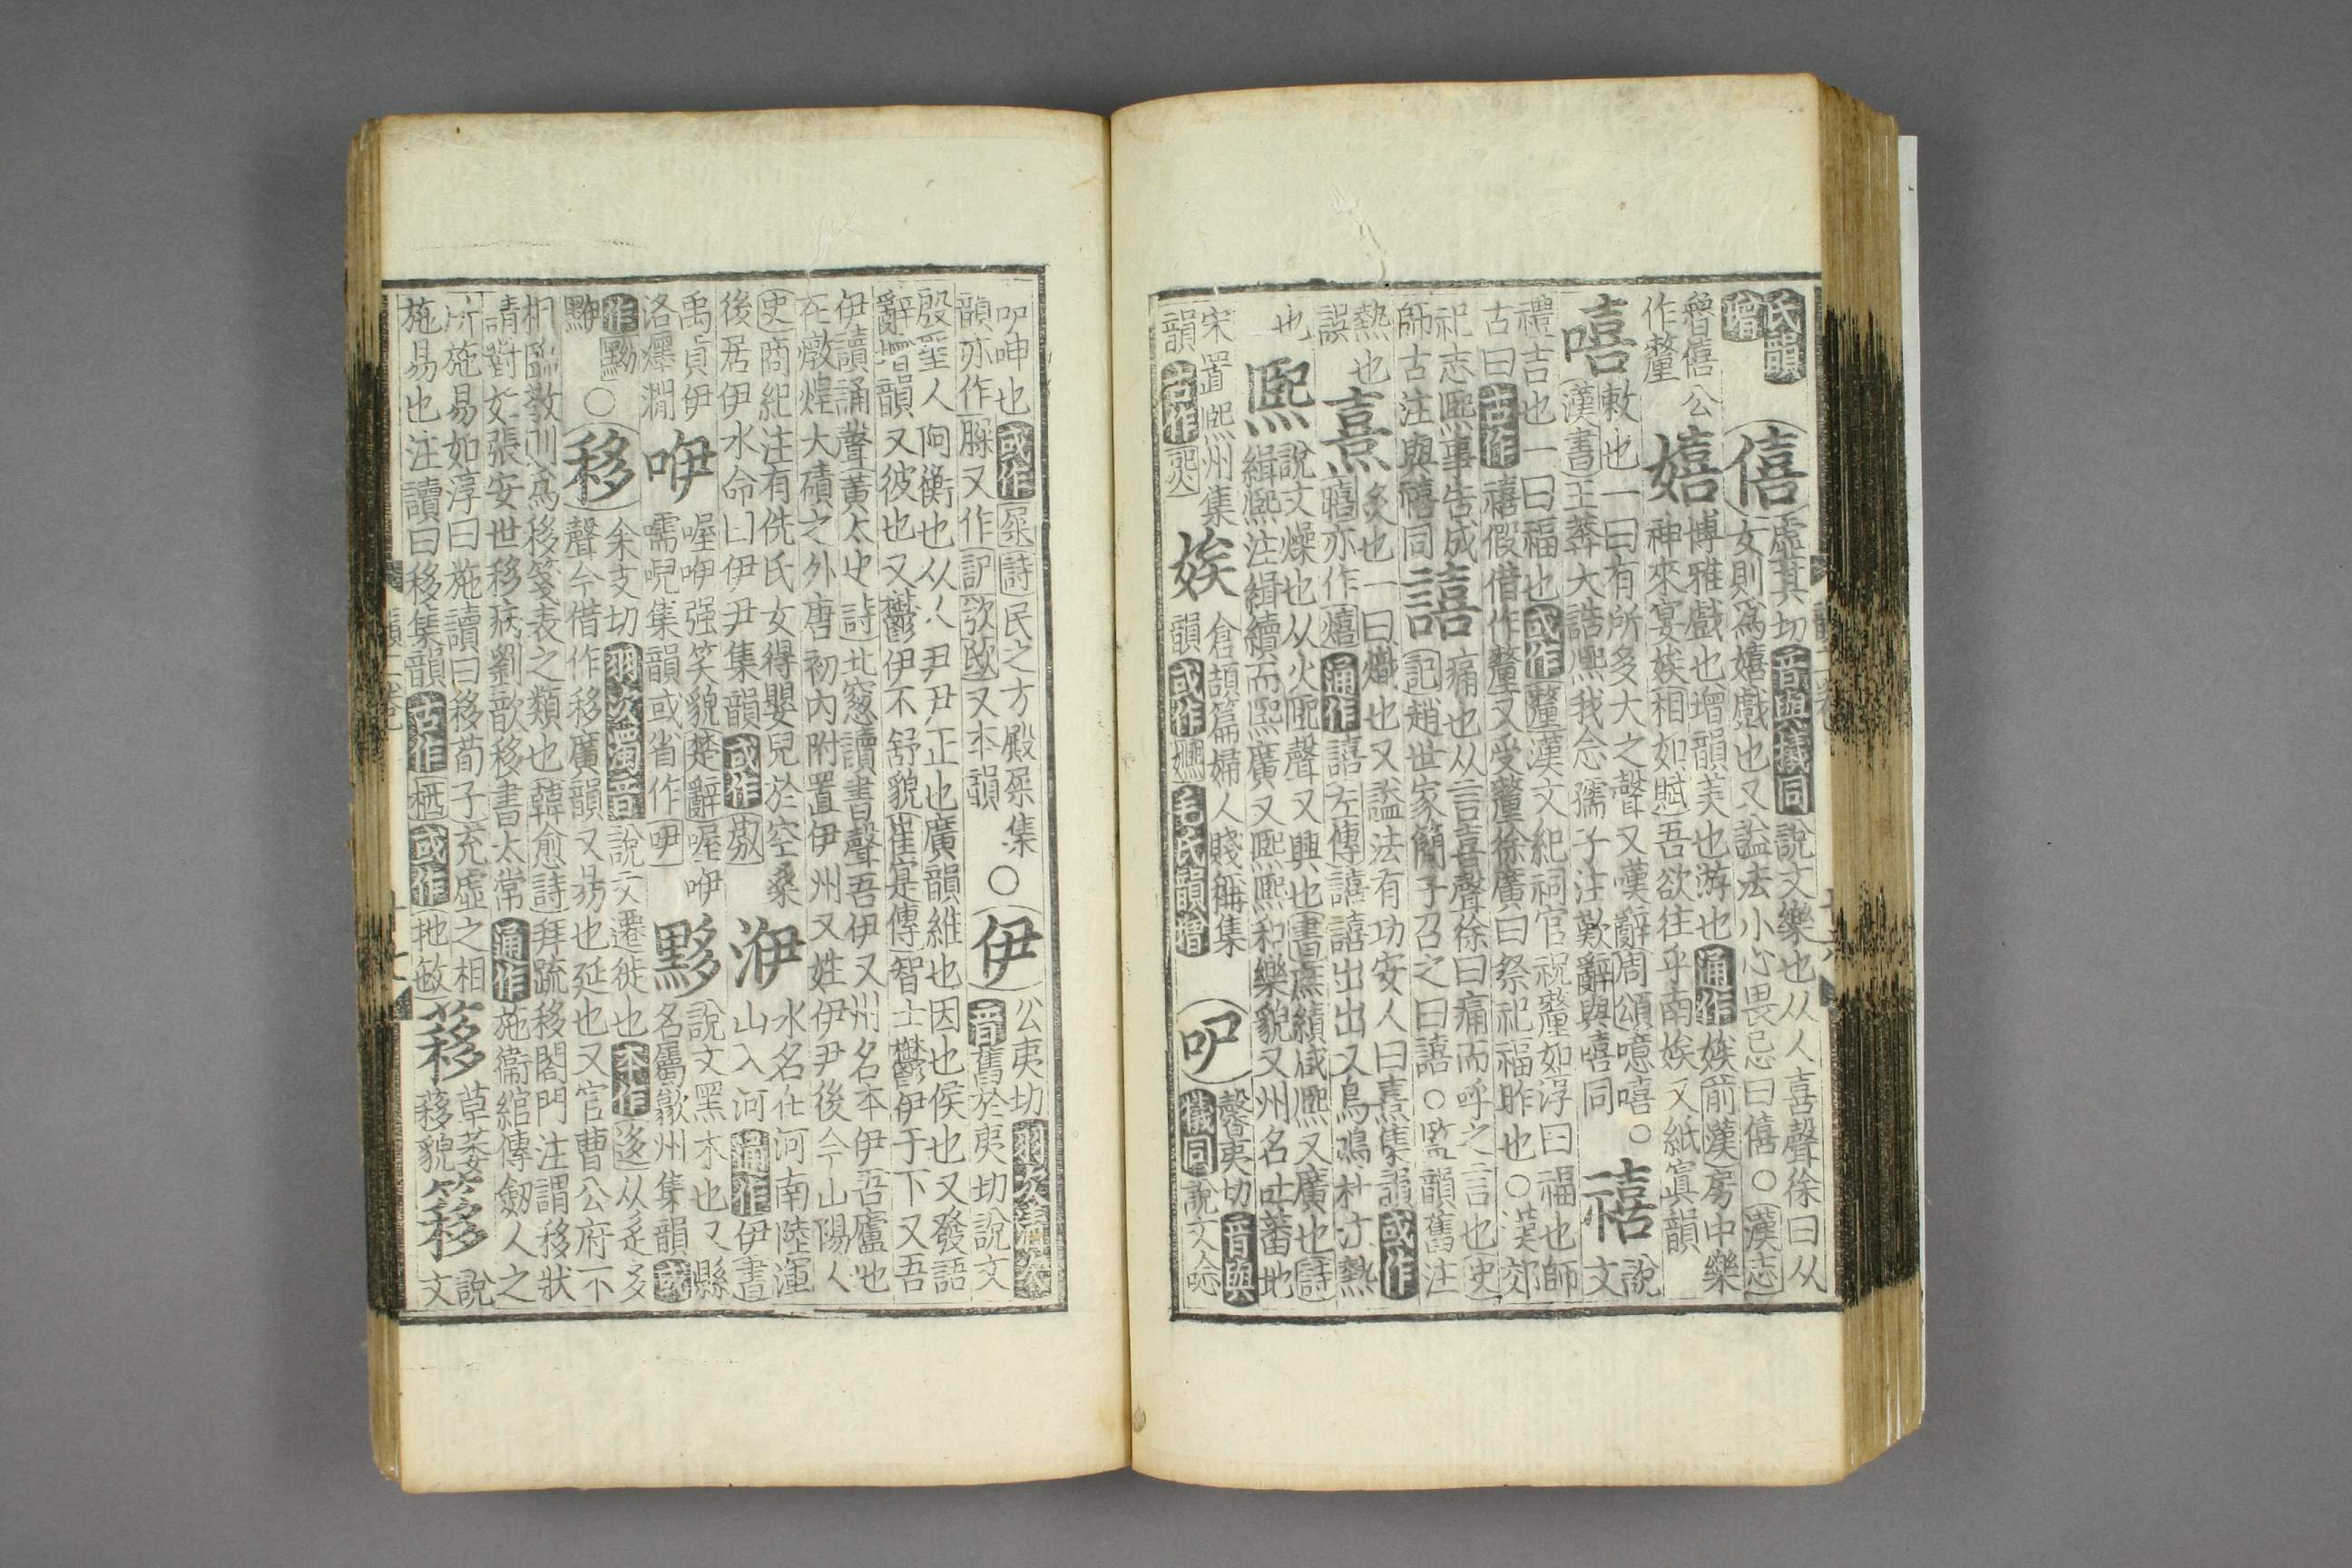 氏韻
增
僖
虛其切音與犧同說文樂也从人喜聲徐曰从
女則爲嬉戲也又謚法小心畏忌曰僖○漢志
魯僖公
作釐
嬉
博雅戲也增韻美也游也通作娭前漢房中樂
神來宴娭相如賦吾欲往乎南娭又紙寘韻
嘻
敕也一曰有所多大之聲又嘆辭周頌噫嘻○
漢書王莽大誥熙我念孺子注歎辭與嘻同
禧
說
文
禮吉也一曰福也或作釐漢文紀祠官祝釐如淳曰福也師
古曰古作禧假借作釐又受釐徐廣曰祭祀福胙也○漢郊
祀志熙事告成
師古注與禧同
譆
痛也从言喜聲徐曰痛而呼之言也史
記趙世家簡子召之曰譆○監韻舊注
熱也
誤
熹
炙也一曰熾也又謚法有功安人曰熹集韻或作
暿亦作熺通作譆左傳譆譆出出又鳥鳴杜注熱
也
熙
說文燥也从火巸聲又興也書庶績咸熙又廣也詩
緝熙注緝續而熙廣又熙熙和樂貌又州名吐蕃地
宋置熙州集
韻古作
娭
倉頡篇婦人賤稱集
韻或作毛氏韻增
吚
馨夷切音與
犧同說文唸
吚呻也或作屎詩民之方殿屎集
韻亦作脲又作又本韻
○伊
公夷切羽次清次音
舊於夷切說文
殷聖人阿衡也从人尹尹正也廣韻維也因也侯也又發語
辭增韻又彼也又鬱伊不舒貌崔寔傳智士鬱伊于下又吾
伊讀誦聲黃太史詩北窓讀書聲吾伊又州名本伊吾廬地
在燉煌大磧之外唐初內附置伊州又姓伊尹後今山陽人
史商紀注有侁氏女得嬰兒於空桑
後居伊水命曰伊尹集韻或作
洢
水名在河南陸渾
山入河通作伊書
禹貢伊
洛瀍澗
咿
喔咿强笑貌楚辭喔咿
嚅唲集韻或省作吚
黟
說文黑木也又縣
名屬歙州集韻或
作黝
○移
余支切羽次濁音說文遷徙也本作迻从辵多
聲今借作移廣韻又易也延也又官曹公府不
相臨敬則爲移箋表之類也韓愈詩拜疏移閤門注謂移狀
請對文張安世移病劉歆移書太常通作施衛綰傳劒人之
所施易如淳曰施讀曰移荀子充虛之相
施易也注讀曰移集韻古作或作
蓚
草萎
蓚貌
簃
說
文